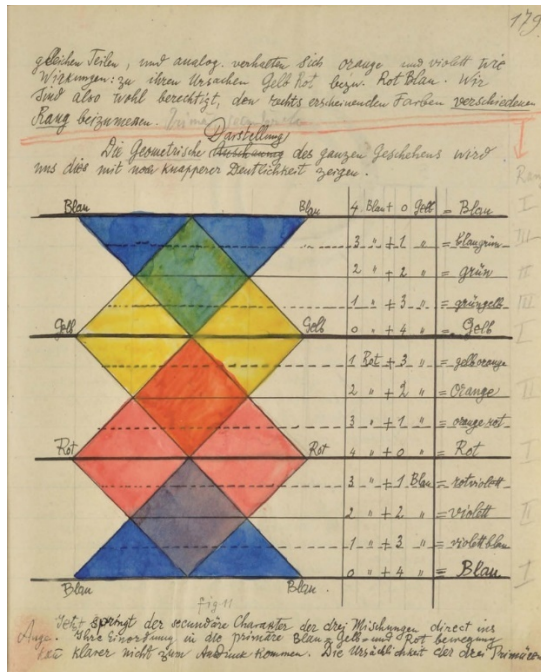 179
gleichen Teilen, und analog verhalten sich orange und violett wie
Wirkungen zu ihren Ursachen Gelb Rot bezw. Rot Blau. Wir
sind also wohl berechtigt, den rechts erscheinenden Farben verschiedenen
Rang beizumessen.
Darstellung
Die Geometrische des ganzen Geschehens wird
uns dies mit noch knapperer Deutlichkeit zeigen.
Blau Blau 4 Blau + 0 Gelb = Blau I
3 " + 1 " = blaugrün III
2 " + 2 " = grün II
1 " + 3 " = grüngelb III
Gelb Gelb 0 " + 4 " = Gelb I
1 Rot + 3 " = gelborange
2 " + 2 " = Orange II
3 " + 1 " = orangerot
Rot Rot 4 " + 0 " = Rot I
3 " + 1 Blau = rotviolett
2 " + 2 " = violett II
1 " + 3 " = violettblau
Blau Blau 0 " + 4 " = Blau I
Fig 11
Jetzt springt der secundäre Charakter der drei Mischungen direct ins
Auge. Ihre Einordnung in die primäre Blau = Gelb = und Rot bewegung
klarer nicht zum Ausdruck kommen. Die Ursächlichkeit der drei Primären